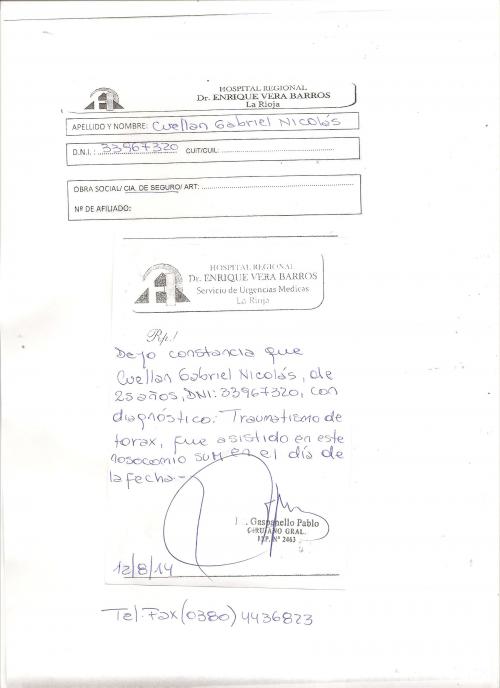 HOSPITAL REGIONAL
Dr. ENRIQUE VERA BARROS
La Rioja
APELLIDO Y NOMBRE: Cuellar Gabriel Nicolás
D.N.I. : 33967320 CUIT/CUIL:
OBRA SOCIAL/ CIA. DE SEGURO/ ART:
Nº DE AFILIADO:
HOSPITAL REGIONAL
Dr. ENRIQUE VERA BARROS
Servicio de Urgencias Medicas
La Rioja
Rp.!
Dejo constancia que
Cuellar Gabriel Nicolás, de
25 años, DNI: 33967320, con
diagnóstico: Traumatismo de
torax, fue asistido en este
nosocomio SUM en el día de
la fecha.-
Gaspanello Pablo
CIRUJANO GRAL.
M.P. Nº 2463
12/8/14
Tel-Fax (0380) 4436823